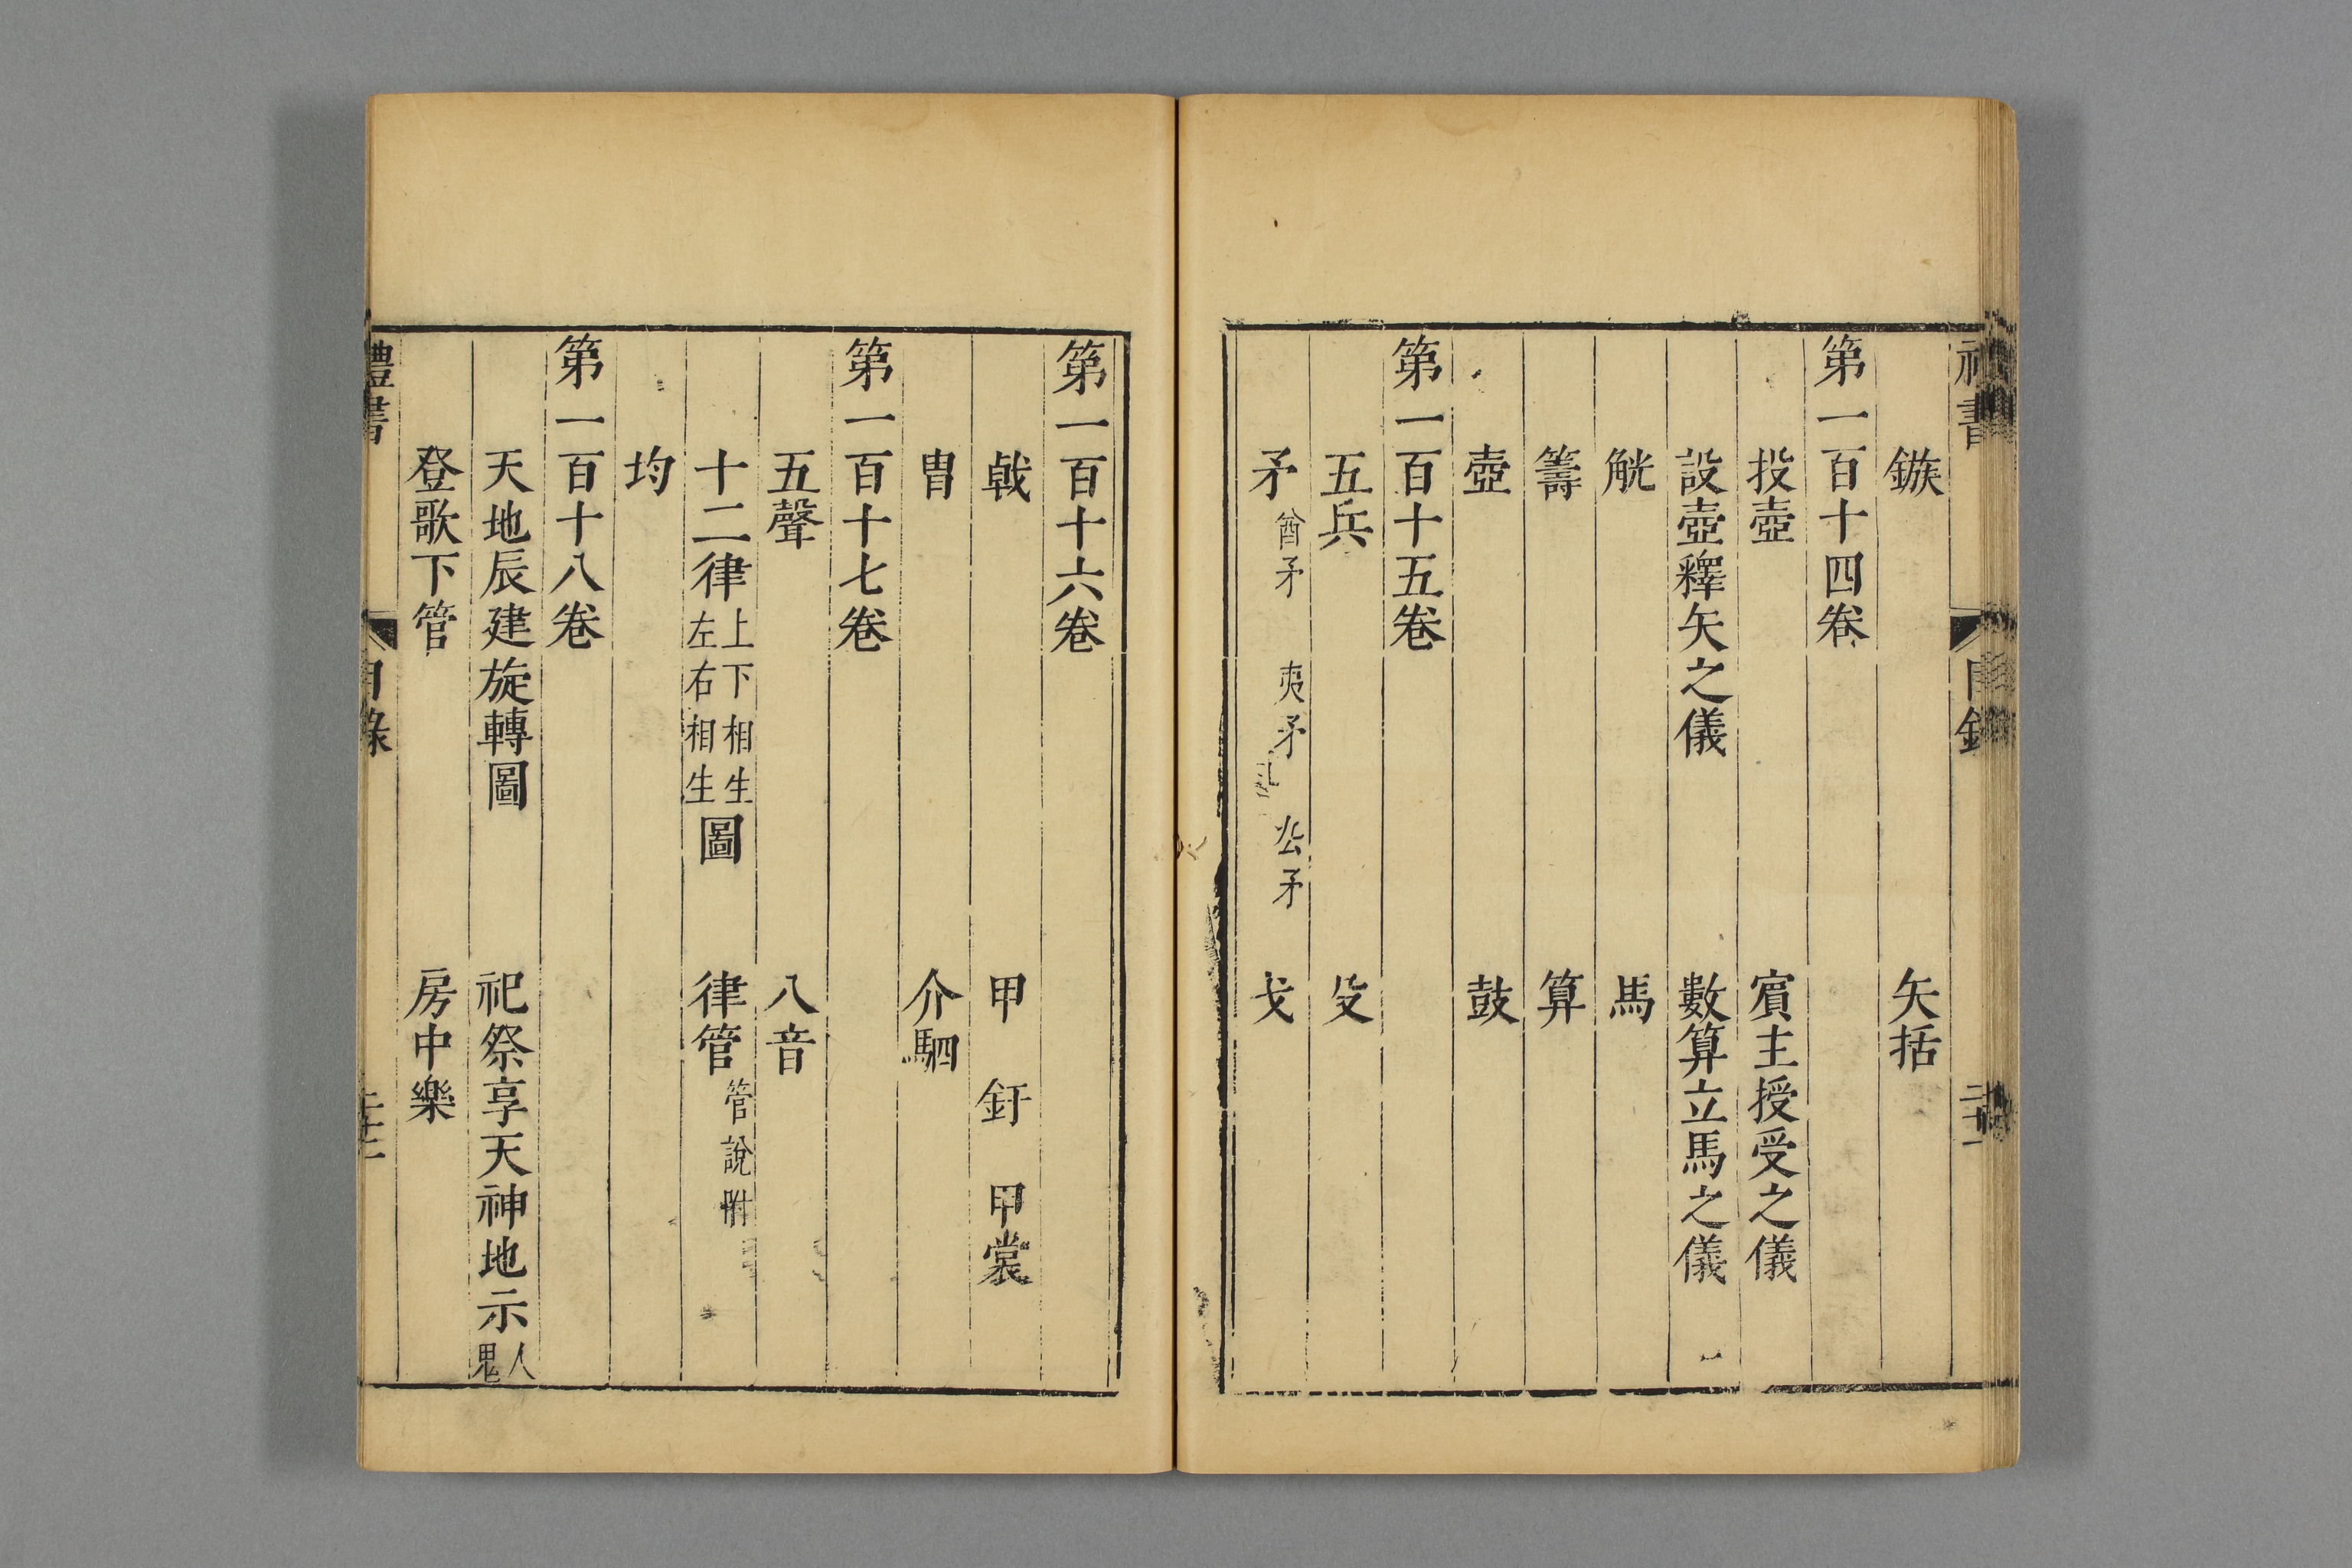 鏃　矢括
第一百十四卷
投壺　賔主授受之儀
設壺釋矢之儀　數算立馬之儀
觥　馬
籌　算
壺　鼓
第一百十五卷
五兵　殳
矛 酋矛 夷矛 厹矛　戈
第一百十六卷
戟　甲 釬 甲裳
冑　介駟
第一百十七卷
五聲　八音
十二律上下相生左右相生圖　律管管說附
均
第一百十八卷
天地辰建旋轉圖　祀祭享天神地示人鬼
登歌下管　房中樂
禮書　目錄